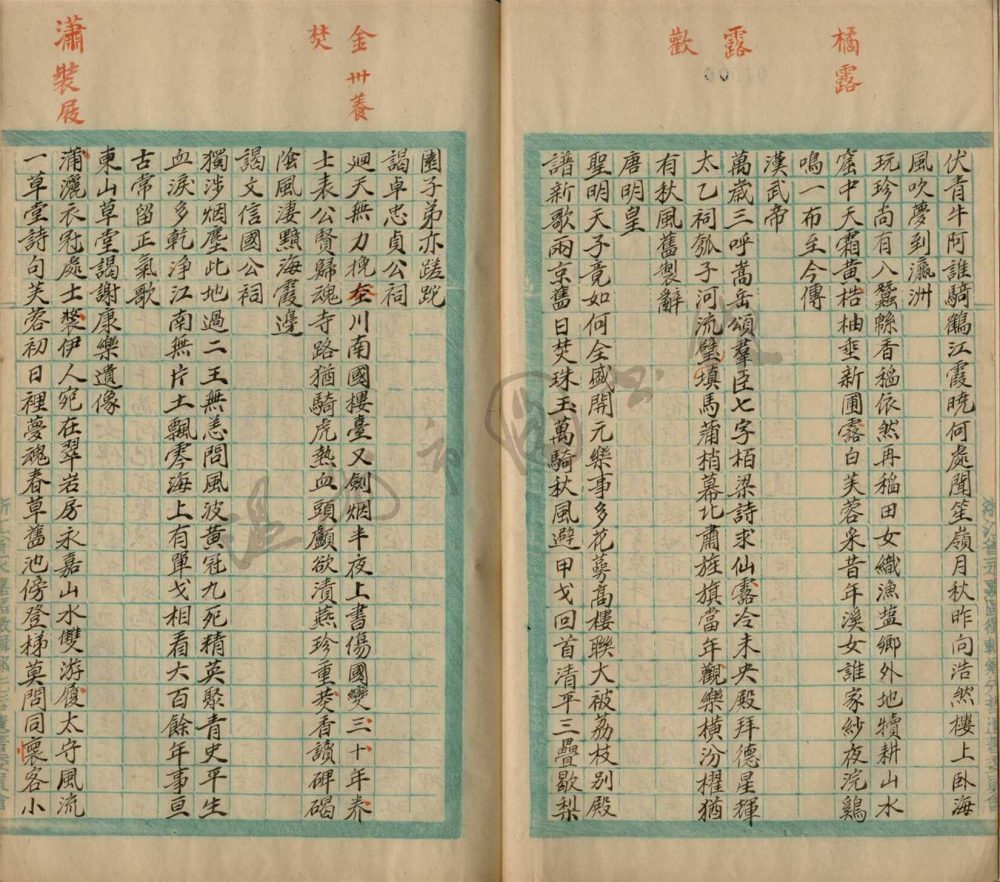 橘露
露
歡
伏青牛阿誰騎鶴江霞曉何處聞笙嶺月秋昨向浩然樓上臥海
風吹夢到瀛洲
玩珍尚有八蠶緜香稻依然再稻田女織漁鹽鄉外地犢耕山水
窟中天霜黃桔柚垂新圃露白芙蓉采昔年溪女誰家紗夜浣鷄
鳴一布至今傳
漢武帝
萬歲三呼嵩岳頌羣臣七字栢梁詩求仙露冷未央殿拜德星輝
太乙祠瓠子河流璧填馬蒲梢幕北肅旌旗當年觀樂橫汾櫂猶
有秋風舊製辭
唐明皇
聖明天子竟如何全盛開元樂事多花萼高樓聯大被荔枝别殿
譜新歌兩京舊日焚珠玉萬騎秋風避甲戈回首清平三疊歇梨
金卅養
焚
瀟裝屐
園子弟亦蹉跎
謁卓忠貞公祠
廻天無力挽川南國樓臺又劍烟半夜上書傷國變三十年养
士表公賢歸魂寺路猶騎虎熱血頭顱欲漬燕珍重焚香讀碑碣
陰風淒黯海霞邊
謁文信國公祠
獨涉烟塵此地過二王無恙問風波黃冠九死精英聚青史平生
血淚多乾浄江南無片土飄零海上有單戈相看大百餘年事亘
古常留正氣歌
東山草堂謁謝康樂遺像
蒲灑衣冠處士裝伊人宛在翠岩房永嘉山水雙游屐太守風流
一草堂詩句芙蓉初日裡夢魂春草舊池傍登梯莫問同懷客小